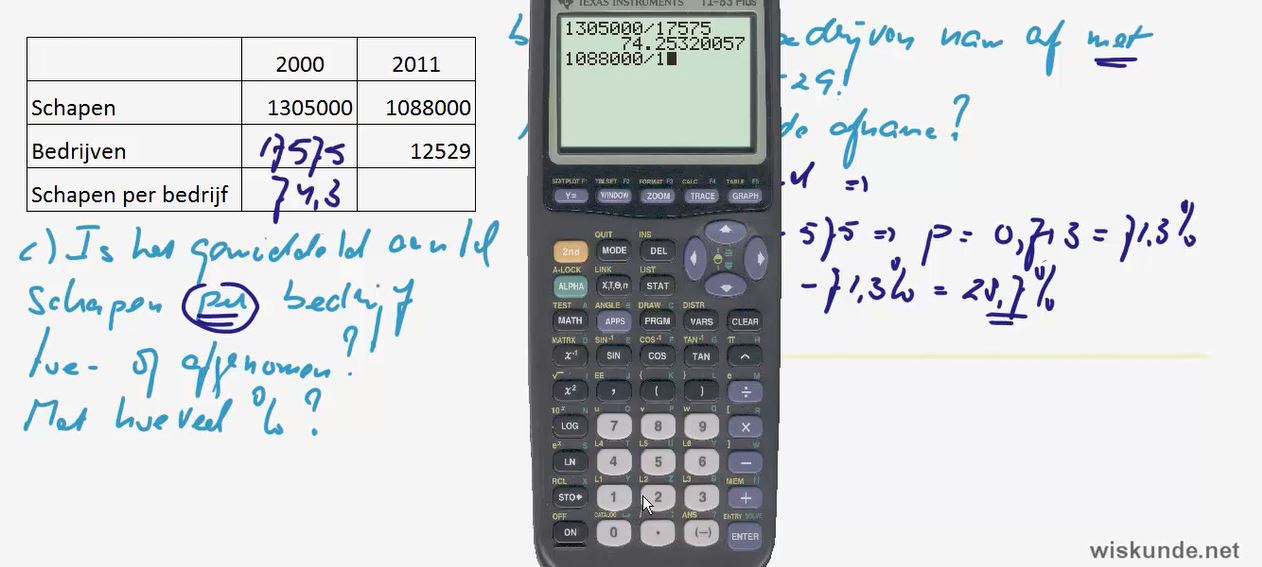 2000 2011
Schapen 1305000 1088000
Bedrijven 17575 12529
Schapen per bedrijf 74,3
c) Is het gemiddeld aantal
schapen per bedrijf
toe- of afgenomen?
Met hoeveel %?
TEXAS INSTRUMENTS TI-83 Plus
1305000/17575
74.25320057
1088000/1
bedrijven nam af met
29!
de afname?
⇒
575 ⇒ p = 0,713 = 71.3%
- 71,3% = 28,7%
STAT PLOT F1 TBLSET F2 FORMAT F3 CALC F4 TABLE F5
Y= WINDOW ZOOM TRACE GRAPH
QUIT INS
2nd MODE DEL
A-LOCK LINK LIST
ALPHA X,T,Θ,n STAT
TEST A ANGLE B DRAW C DISTR
MATH APPS PRGM VARS CLEAR
MATRX D SIN⁻¹ E COS⁻¹ F TAN⁻¹ G π H
x⁻¹ SIN COS TAN ^
√ I EE J { K } L e M
x² , ( ) ÷
10ˣ N u O v P w Q [ R
LOG 7 8 9 ×
eˣ S L4 T L5 U L6 V ] W
LN 4 5 6 −
RCL X L1 Y L2 Z L3 θ MEM "
STO▸ 1 2 3 +
OFF CATALOG ANS ? ENTRY SOLVE
ON 0 . (−) ENTER
wiskunde.net